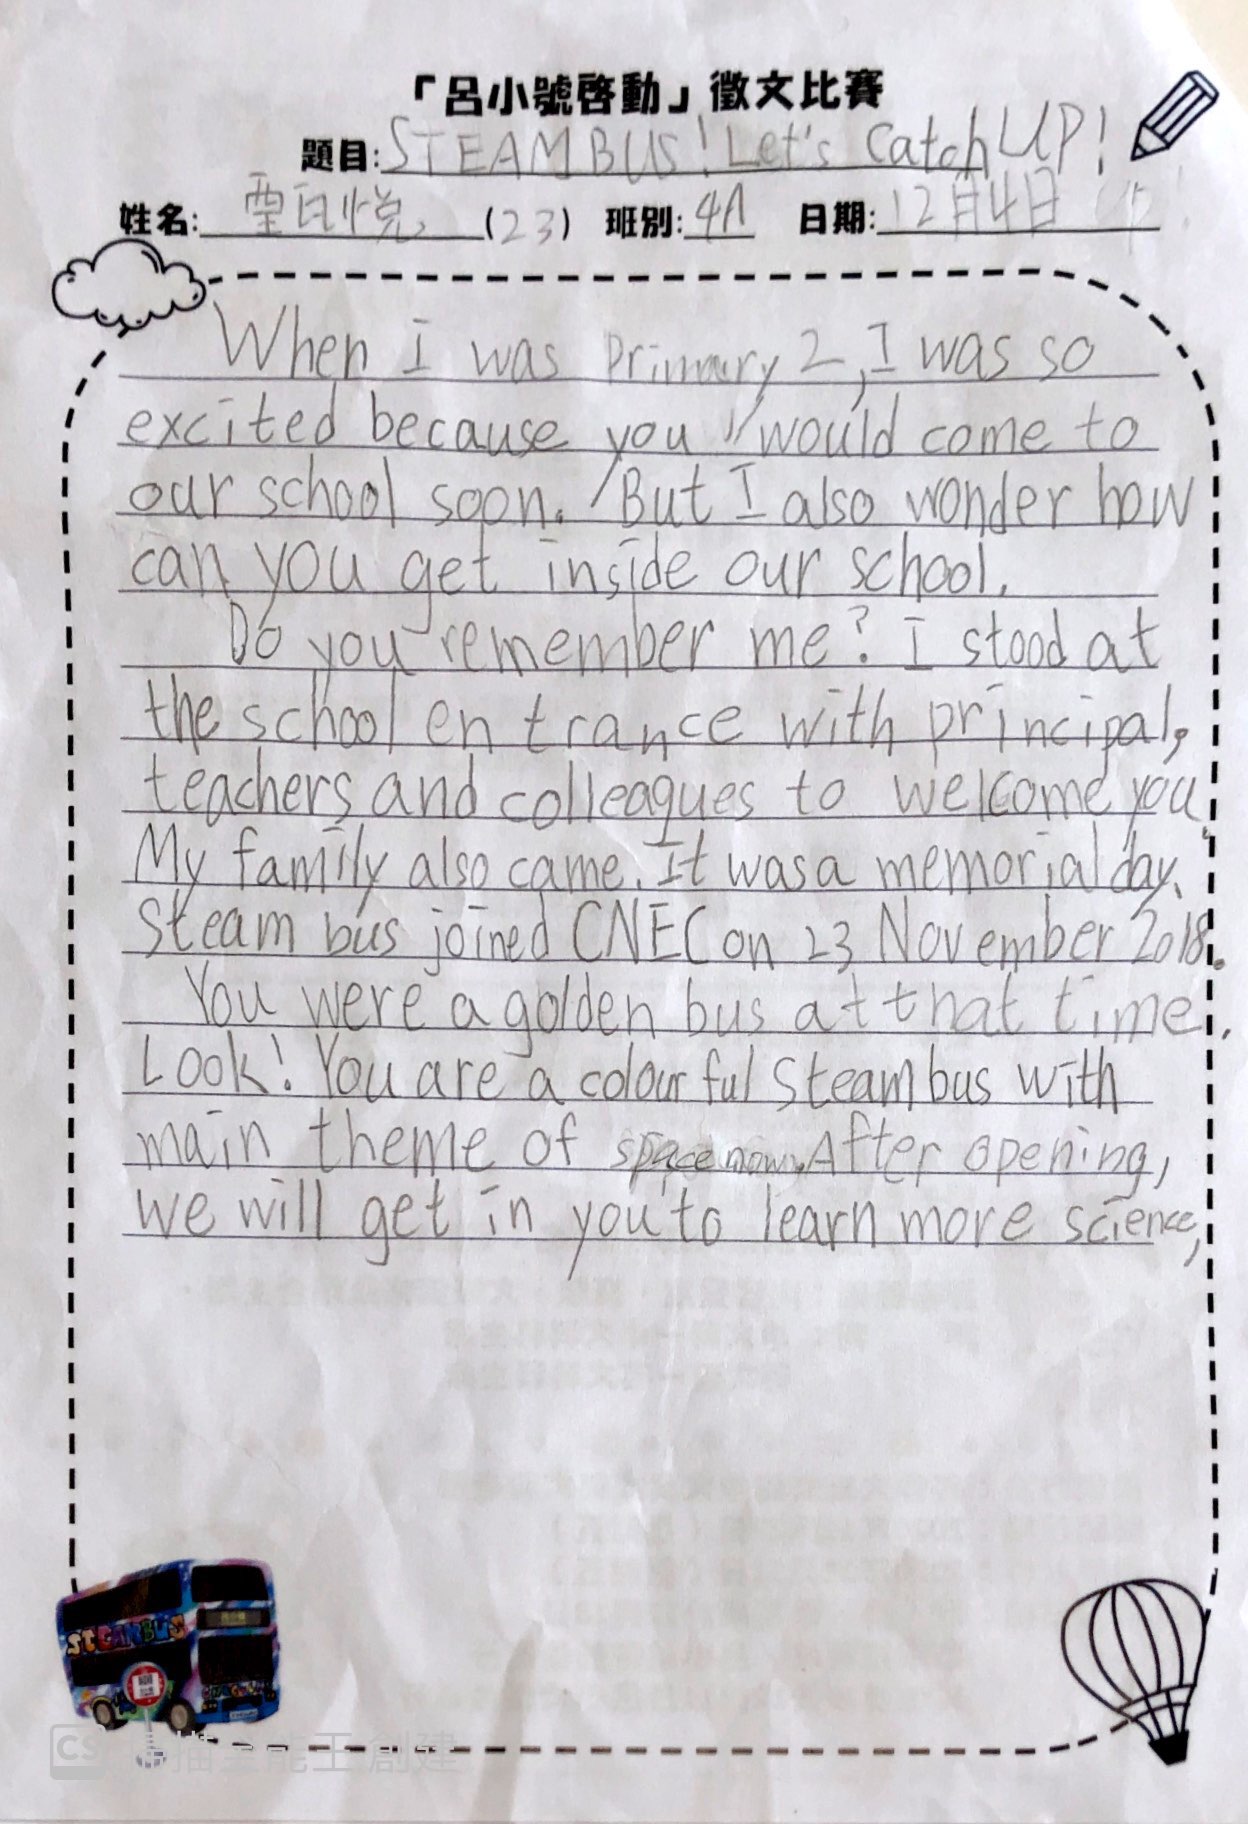 「呂小號啓動」徵文比賽
題目: STEAM BUS! Let's Catch UP!
姓名: (23) 班別: 4A 日期: 12月4日
When I was Primary 2, I was so
excited because you would come to
our school soon. But I also wonder how
can you get inside our school.
Do you remember me? I stood at
the school entrance with principal,
teachers and colleagues to welcome you.
My family also came. It was a memorial day.
Steam bus joined CNEC on 23 November 2018.
You were a golden bus at that time.
Look! You are a colourful Steam bus with
main theme of space now. After opening,
we will get in you to learn more science,
STEAMBUS
CS 扫描全能王 創建